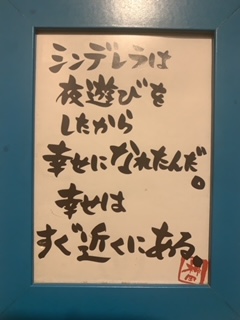 シンデレラは
夜遊びを
したから
幸せになれたんだ。
幸せは
すぐ近くにある。